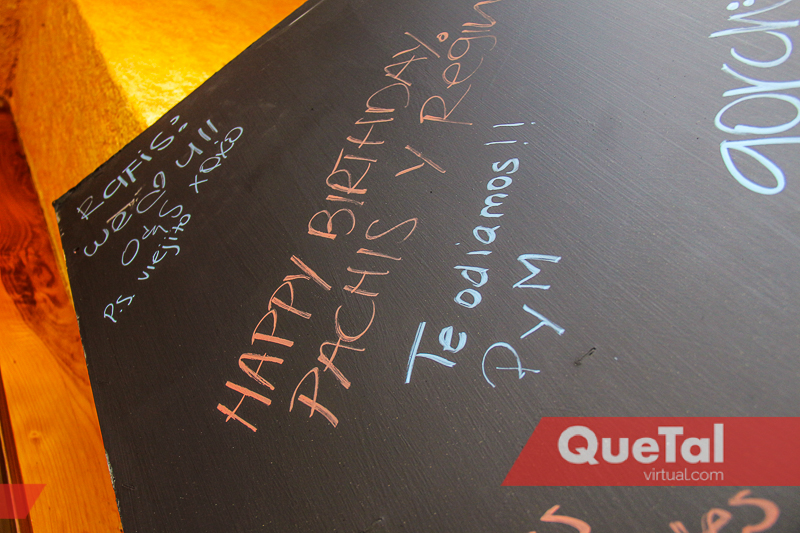 Rafis:
wedd ull
P.S. viejito xoxo
HAPPY BIRTHDAY.
PACHIS Y Regin
Te odiamos!!
P y M
gordi
QueTal
virtual.com